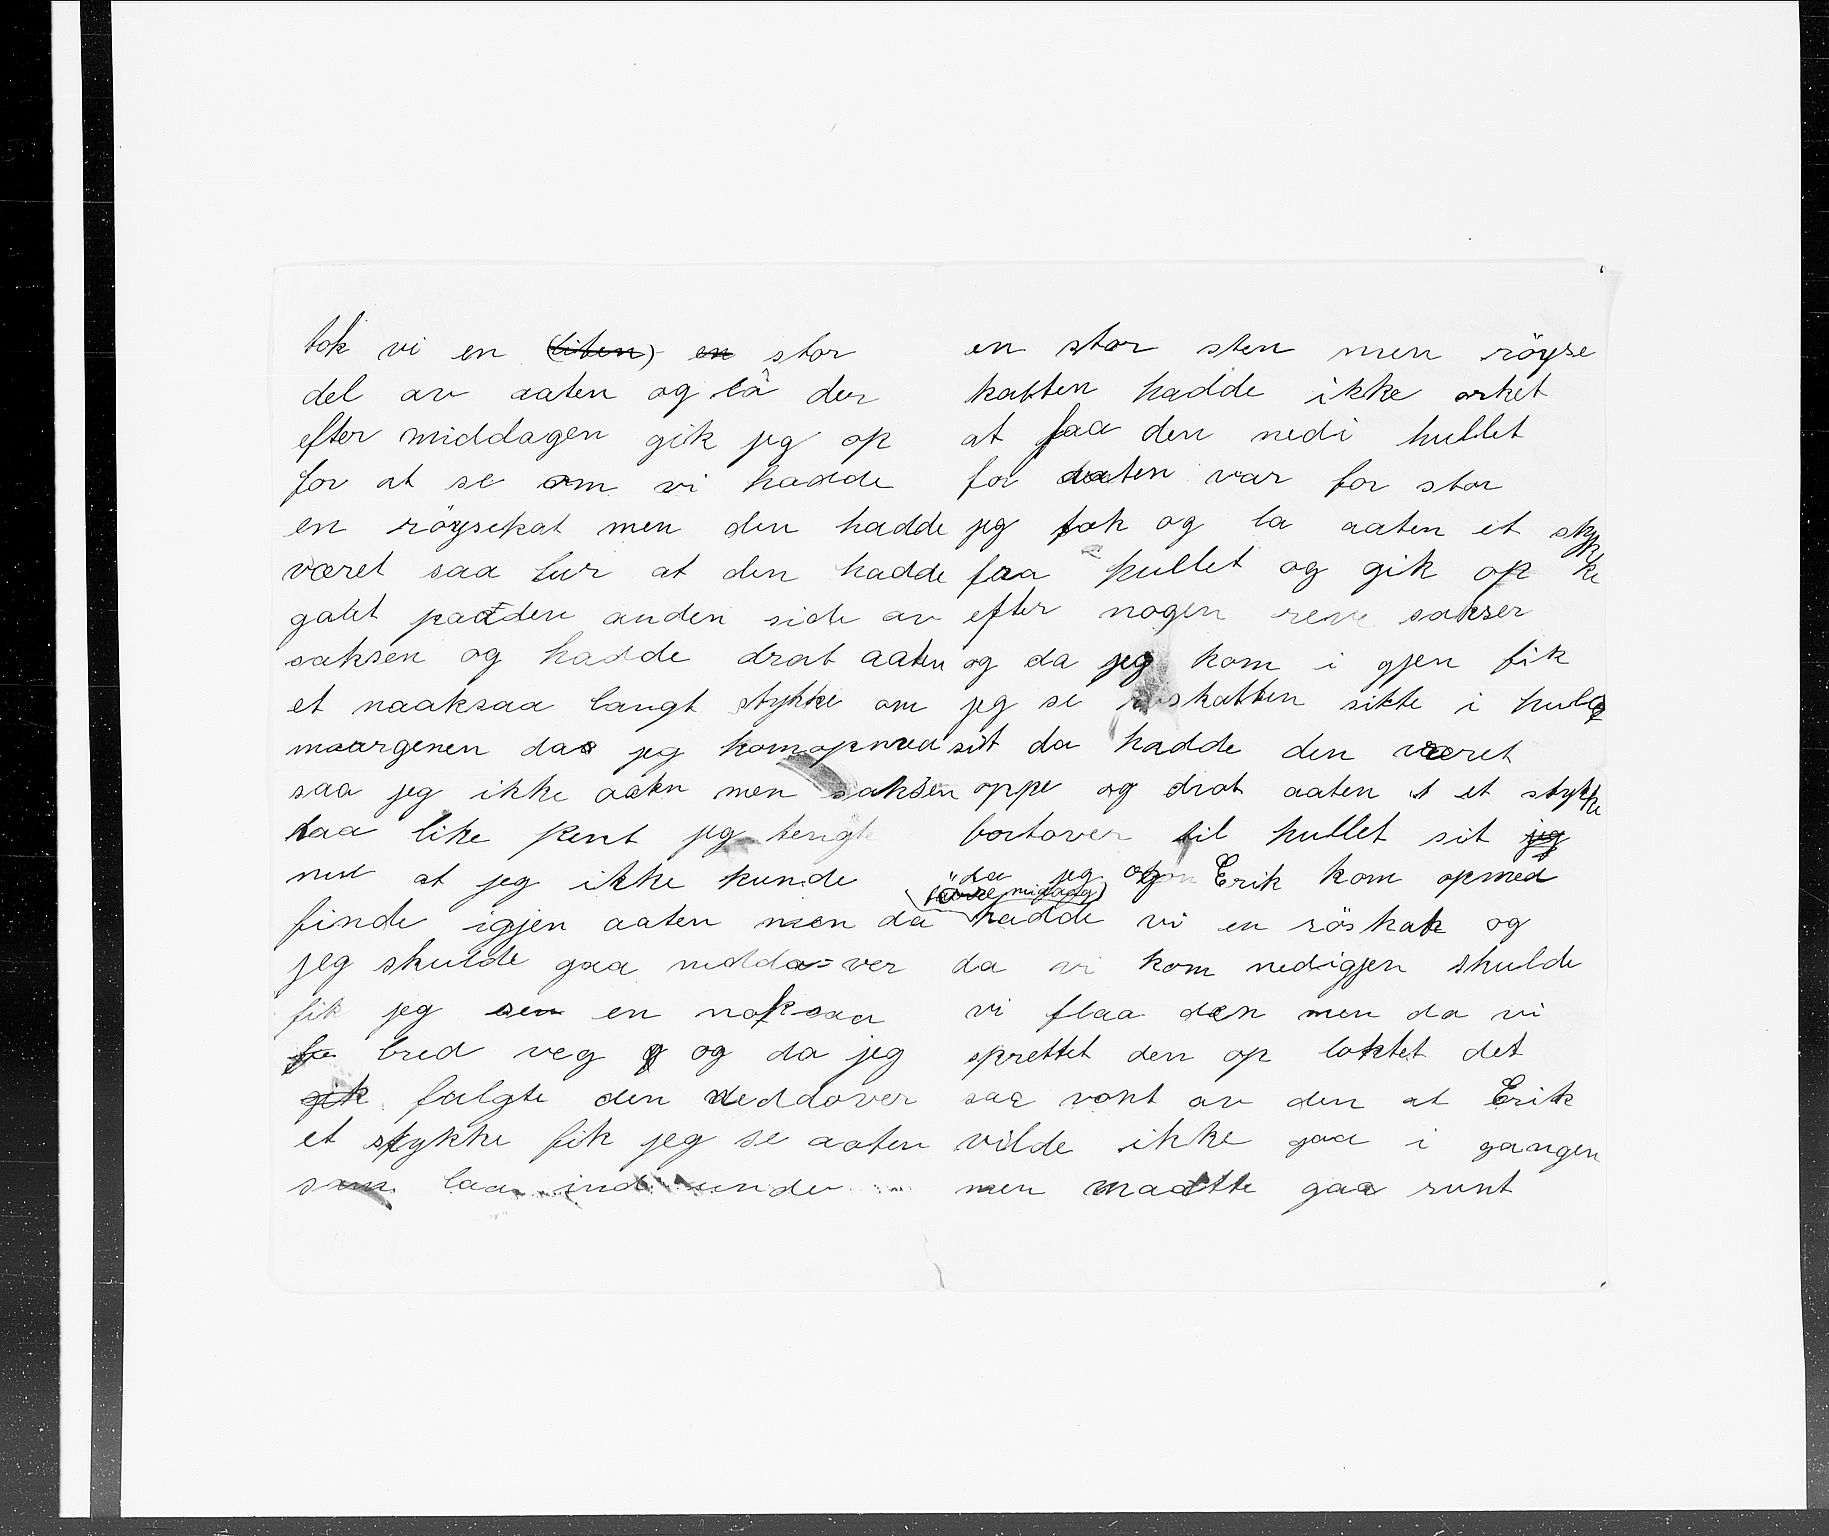 tok vi en (liten) en stor
del av aaten og la der
efter middagen gik jeg op
for at se om vi hadde
en röysekat men den hadde
været saa lur at den hadde
gaat paa den anden side av
saksen og hadde drat aaten
et naaksaa langt stykke om
maargenen da jeg kom op med
saa jeg ikke aaten men saksen
laa like pent jeg tengte
met at jeg ikke kunde
finde igjen aaten men da
jeg skulde gaa neddover
fik jeg sen en noksaa
fo bred veg g og da jeg
gik fulgte den neddover
et stykke fik jeg se aaten
som laa ind under
en stor sten men röyse
katten hadde ikke orket
at faa den nedi hullet
for aaten var for stor
jeg tok og la aaten et stykke
fra hullet og gik op
efter nogen reve sakser
og da jeg kom i gjen fik
jeg se röskatten sitte i hullet
sit da hadde den været
oppe og drat aaten et stykke
bortover til hullet sit jeg
da jeg og Erik kom opmed
(före midagg)
hadde vi en röskat og
da vi kom nedigjen skulde
vi flaa den men da vi
sprettet den op loktet det
saa vont av den at Erik
vilde ikke gaa i gangen
men maatte gaa runt